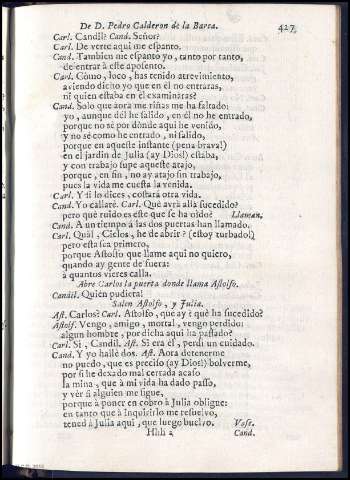 De D. Pedro Calderon de la Barca.
427
Carl. Candil? Cand. Señor?
Carl. De verte aqui me espanto.
Cand. Tambien me espanto yo, tanto por tanto,
de entrar à este aposento.
Carl. Còmo, loco, has tenido atrevimiento,
aviendo dicho yo que en èl no entraras,
ni quien estaba en èl examinàras?
Cand. Solo que aora me riñas me ha faltado:
yo, aunque dèl he salido, en èl no he entrado,
porque no sè por dònde aqui he venido,
y no sè como he entrado, ni salido,
porque en aqueste instante (pena brava!)
en el jardin de Julia (ay Dios!) estaba,
y con trabajo supe aqueste atajo,
porque, en fin, no ay atajo sin trabajo,
pues la vida me cuesta la venida.
Carl. Y si lo dices, costarà otra vida.
Cand. Yo callarè. Carl. Què avrà allà sucedido?
pero què ruido es este que se ha oìdo? Llaman.
Cand. A un tiempo à las dos puertas han llamado.
Carl. Quàl, Cielos, he de abrir? (estoy turbado!)
pero esta sea primero,
porque Astolfo que llame aqui no quiero,
quando ay gente de fuera:
à quantos vieres calla.
Abre Carlos la puerta donde llama Astolfo.
Candil. Quien pudiera!
Salen Astolfo, y Julia.
Ast. Carlos? Carl. Astolfo, que ay? què ha sucedido?
Astolf. Vengo, amigo, mortal, vengo perdido:
algun hombre, por dicha aqui ha passado?
Carl. Si, Candil. Ast. Si era èl, perdì un cuidado.
Cand. Y yo hallè dos. Ast. Aora detenerme
no puedo, que es preciso (ay Dios!) bolverme,
por si he dexado mal cerrada acaso
la mina, que à mi vida ha dado passo,
y vèr si alguien me sigue,
porque à poner en cobro à Julia obligue:
en tanto que à inquirirlo me resuelvo,
tened à Julia aqui, que luego buelvo. Vase.
Hhh 2 Cand.